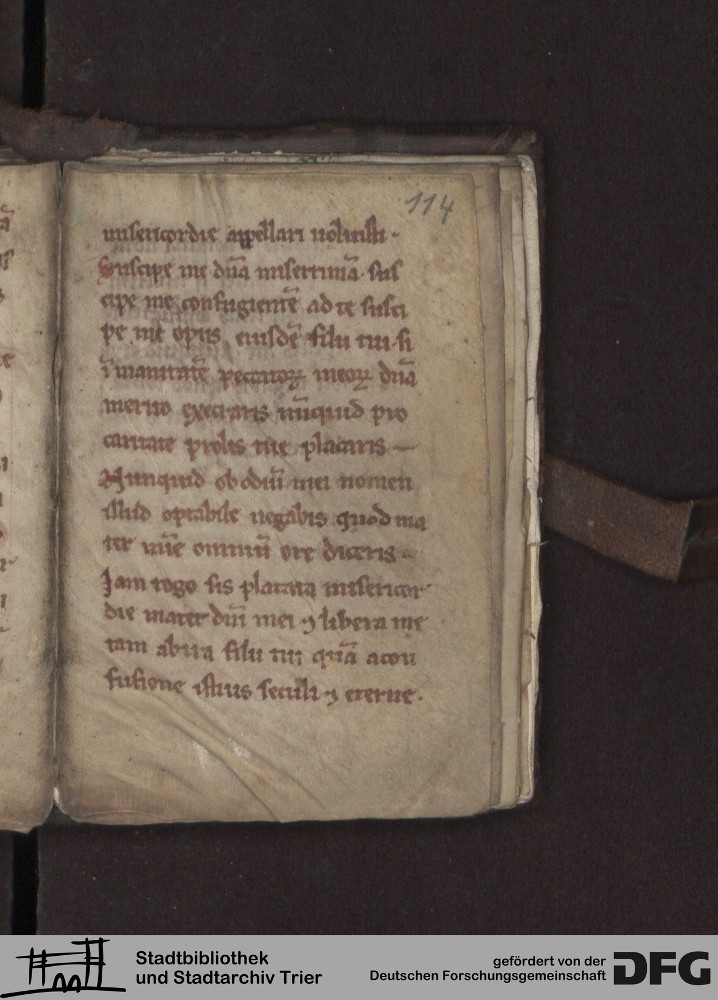 114
misericordie appellari uoluisti.
Suscipe me dn̄a miserrimā. sus
cipe me confugientē ad te susci
pe me opus eiusdē filii tui. si
īmanitatē peccatoꝝ meoꝝ dn̄a
merito execraris nūquid pro
caritate prolis tue placaris
Nunquid ob odiū mei nomen
illud optabile negabis quod ma
ter mīe omniū ore diceris
Iam rogo sis placata misericor
die mater dn̄i mei ⁊ libera me
tam ab ira filii tui quā a con
fusione istius seculi ⁊ eterne.
Stadtbibliothek
und Stadtarchiv Trier
gefördert von der
Deutschen Forschungsgemeinschaft
DFG